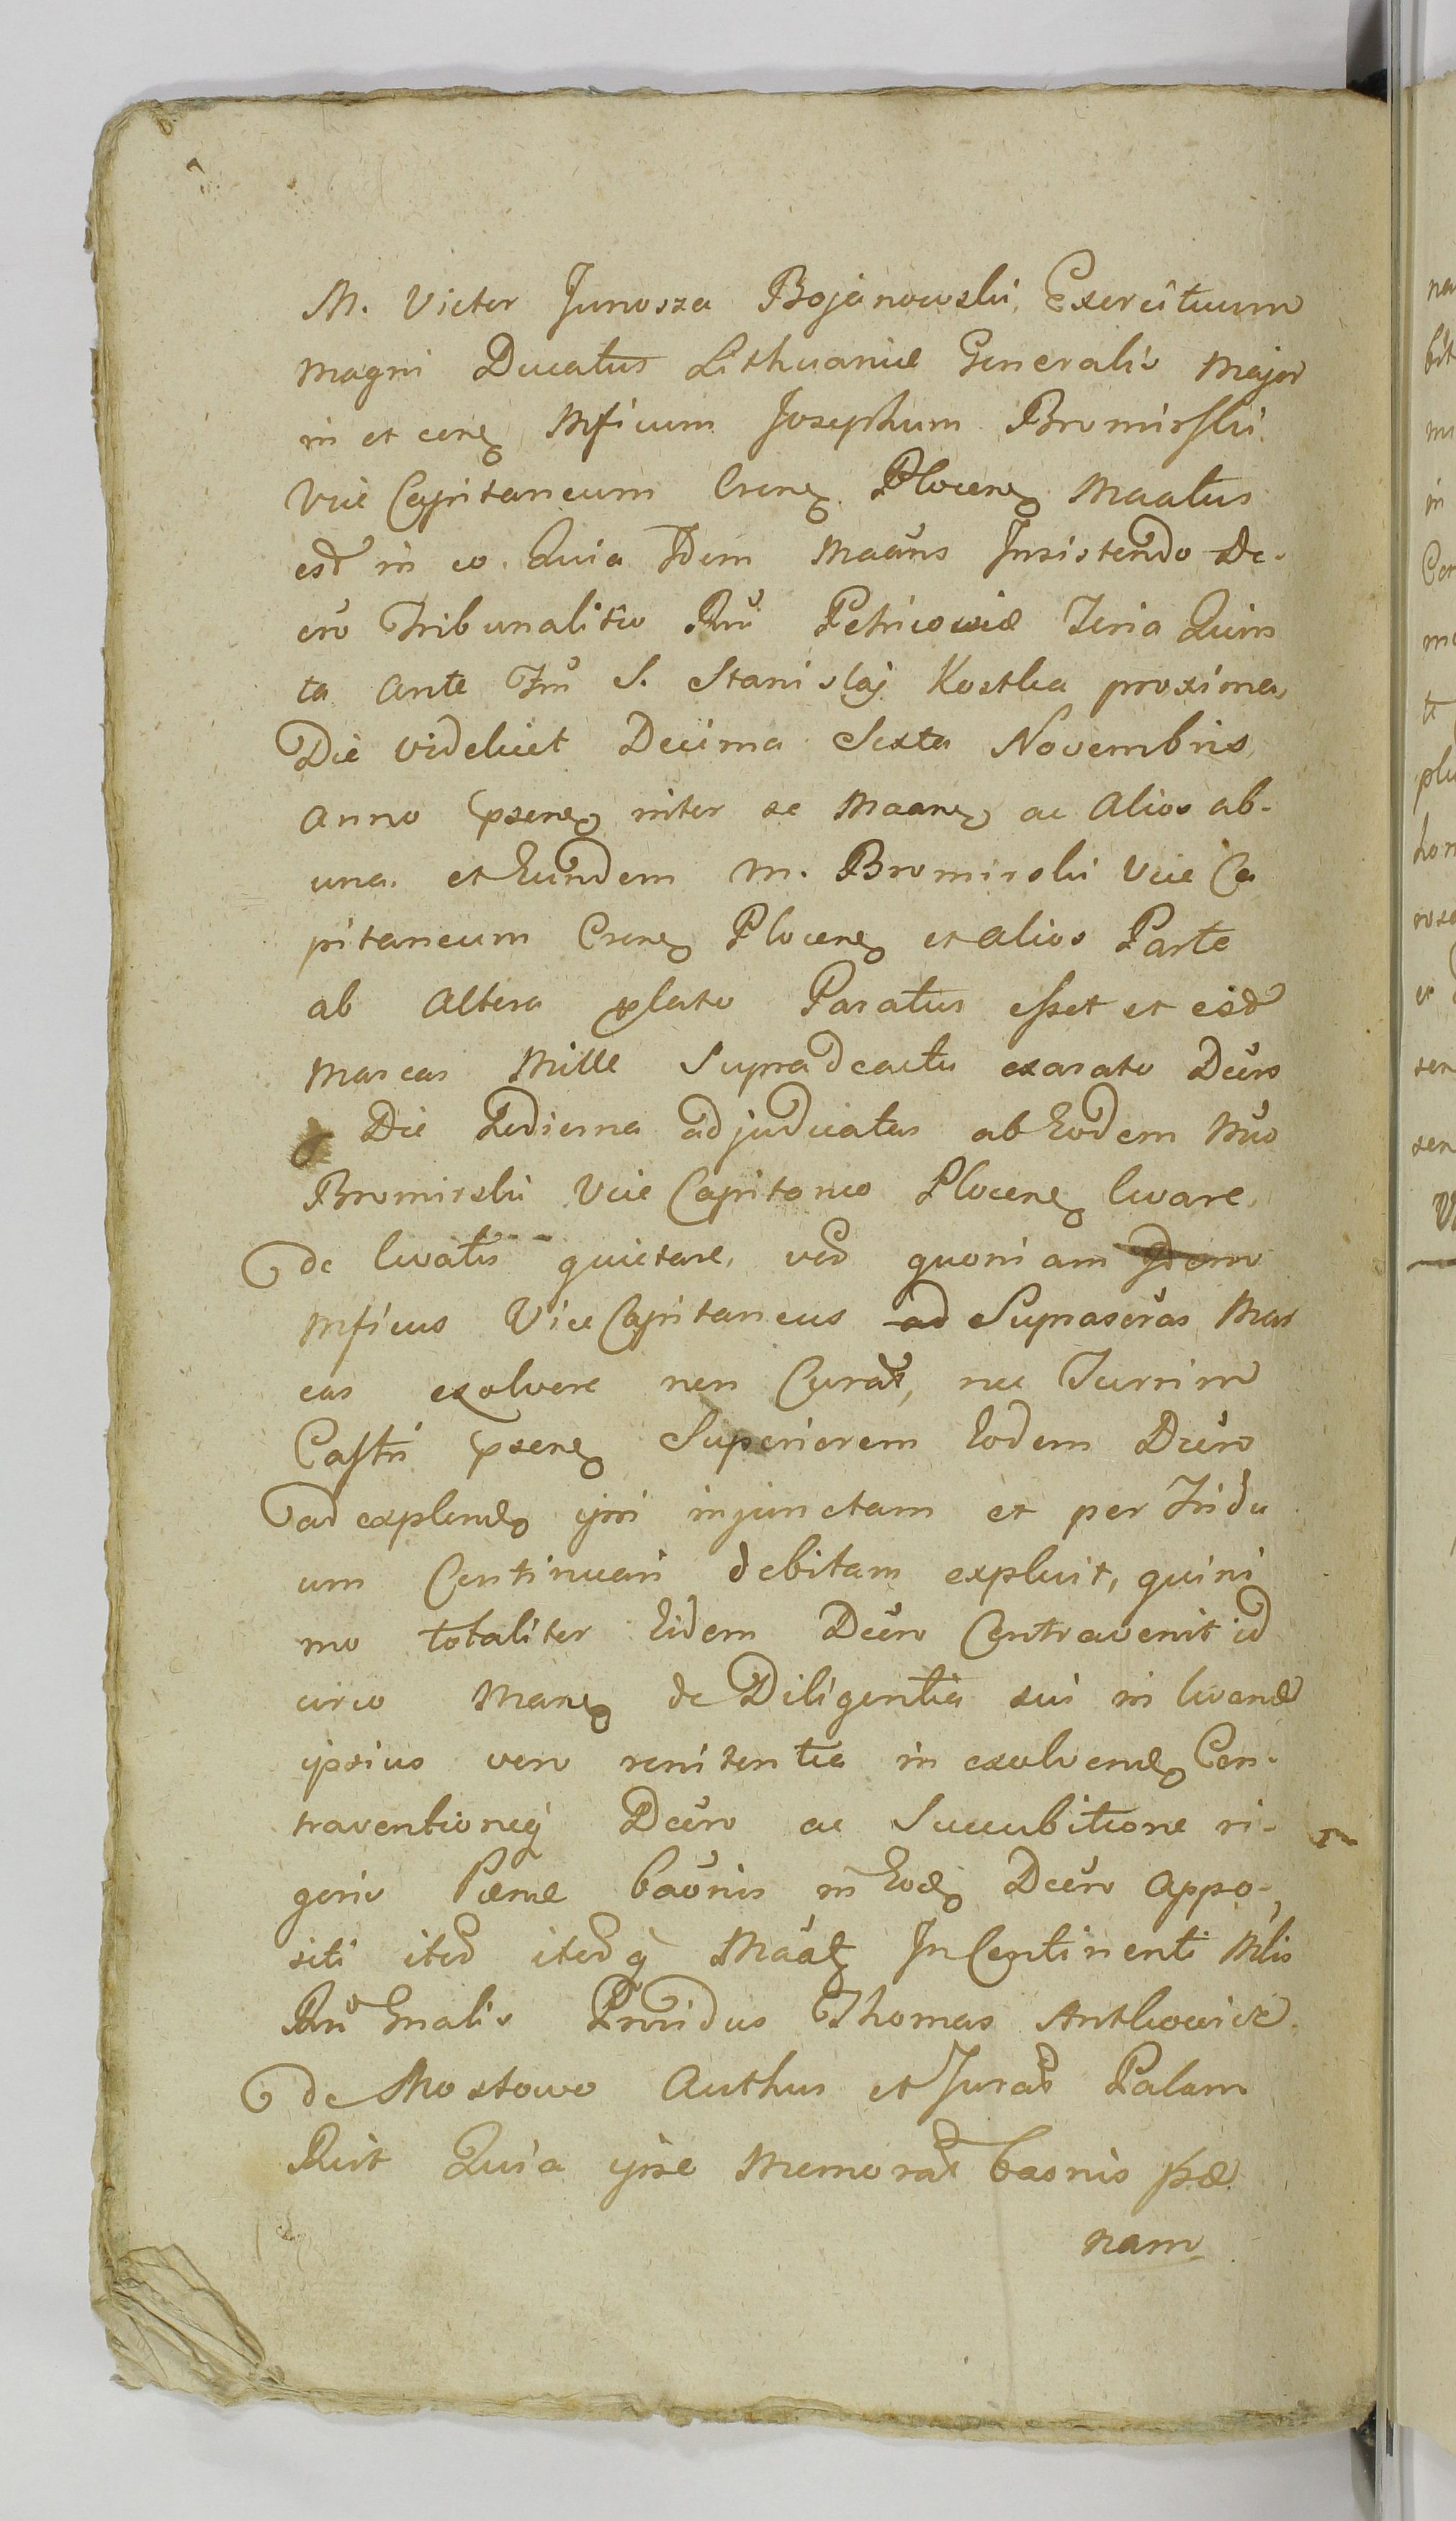 M. Victor Junosza Bojanowski, Exercituum
Magni Ducatus Lithuaniæ Generalis Major
in et conẽ Mficum Josephum Bromirski
Vice Capitaneum Crenẽ Plocenẽ Maatus
est in eo. Quia Idem Maans Insistendo De-
cro Tribunalitio Rni Petricoviæ Feria Quin
ta ante Fm S. Stanislaj Kostka proxima,
Die videlicet Decima Sexta Novembris
Anno psenẽ inter se Maanẽ ac Alios ab-
una. et Eundem M. Bromirski Vice Ca
pitaneum Crenẽ Plocenẽ et alios Parte
ab altera plato Paratus esset et est
Marcas Mille Supra exarato Dcro
Die hodierna adjudicatas ab Eodem Mco
Bromirski Vice Capitaneo Plocenẽ levare
de levatis quietare, ved quoniam
Mficus Vice Capitaneus ad Suprascras Mar
cas exolvere non Curat, nec Turrim
Castri psenẽ Superiorem Eodem Dcro
ad explendẽ ipsi injunctam et per Tridu
um Continuari debitam explevit, quini
mo totaliter Eidem Dcro Contravenit id
circo Manẽ de Diligentia sui in levand
ipsius vero renitentia in exolvendẽ Con-
traventioneq Dcro ac Succubitione ri-
goris Pænæ baonis in Eodẽ Dcro appo-
siti ited itedq Maat In Continenti Mlis
Rni Gnalis Providus Thomas Antkowicz
de Mostowo Authus et Jurat Palam
Rcit Quia ipse Memorat baonis pæ
nam